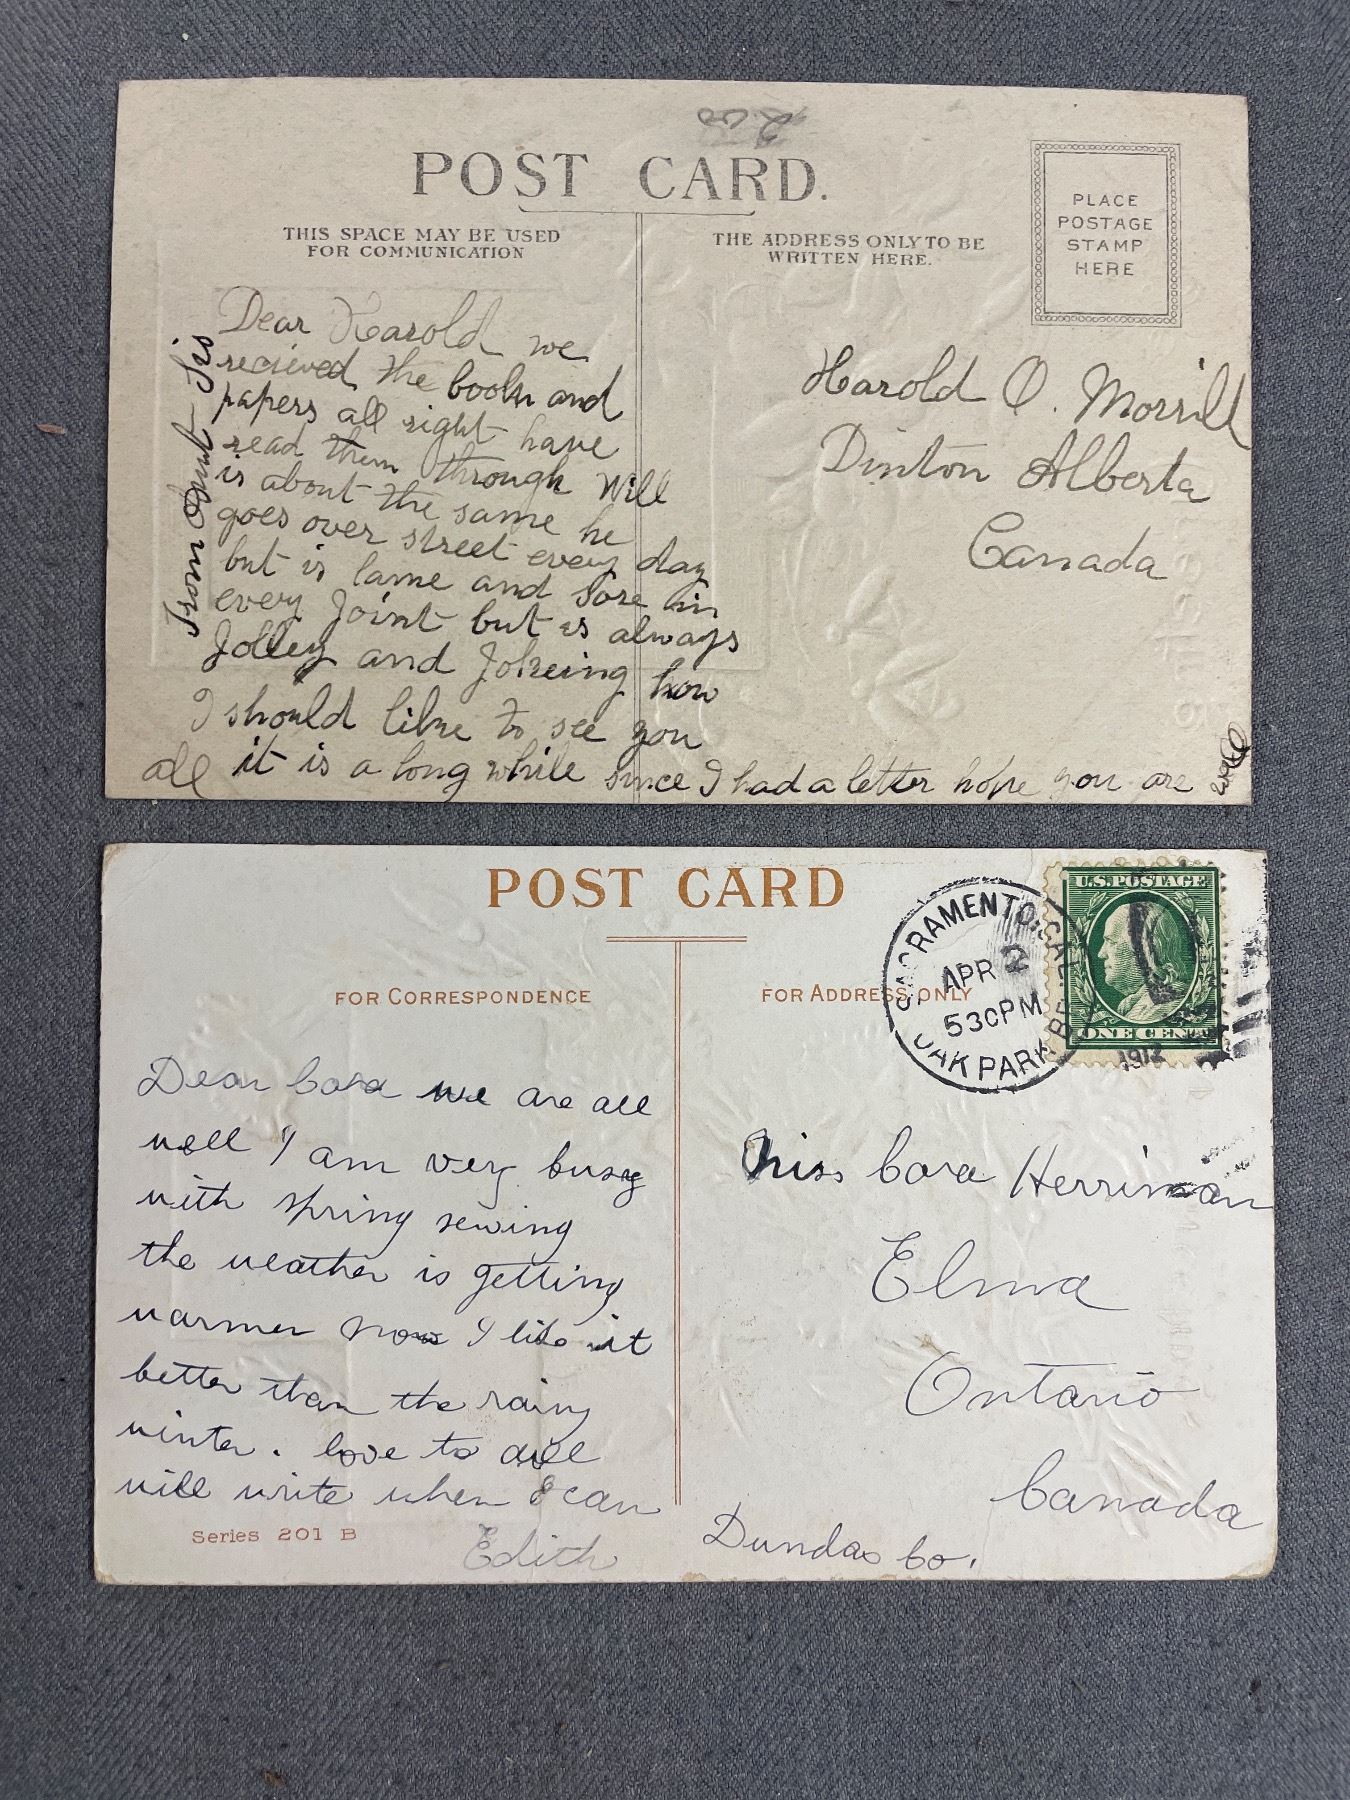 2.00
POST CARD.
THIS SPACE MAY BE USED
FOR COMMUNICATION
THE ADDRESS ONLY TO BE
WRITTEN HERE.
PLACE
POSTAGE
STAMP
HERE
Dear Harold we
recieved the books and
papers all right have
read them through Will
is about the same he
goes over street every day
but is lame and sore in
every Joint but is always
Jolley and Jokeing how
I should like to see you
all it is a long while since I had a letter hope you are
well
From Aunt Sis
Harold O. Morrill
Dinton Alberta
Canada
POST CARD
FOR CORRESPONDENCE
FOR ADDRESS ONLY
SACRAMENTO, CAL.
APR 2
530PM
OAK PARK
1912
U.S. POSTAGE
ONE CENT
Dear Cora we are all
well I am very busy
with spring sewing
the weather is getting
warmer now I like it
better than the rainy
winter. love to all
will write when I can
Edith
Series 201 B
Miss Cora Herriman
Elma
Ontario
Canada
Dundas Co.